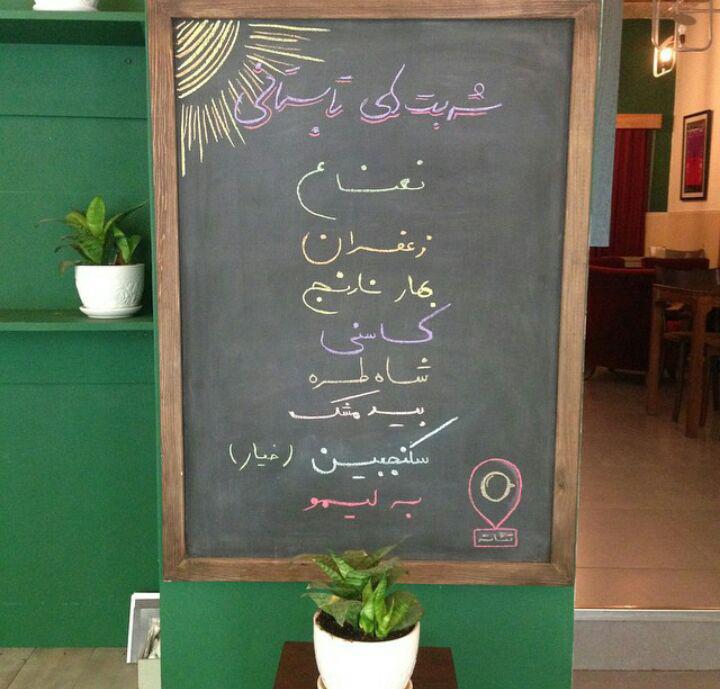 شربت های تابستانی
نعناع
زعفران
بهار نارنج
کاسنی
شاه طره
بید مشک
سکنجبین (خیار)
به لیمو